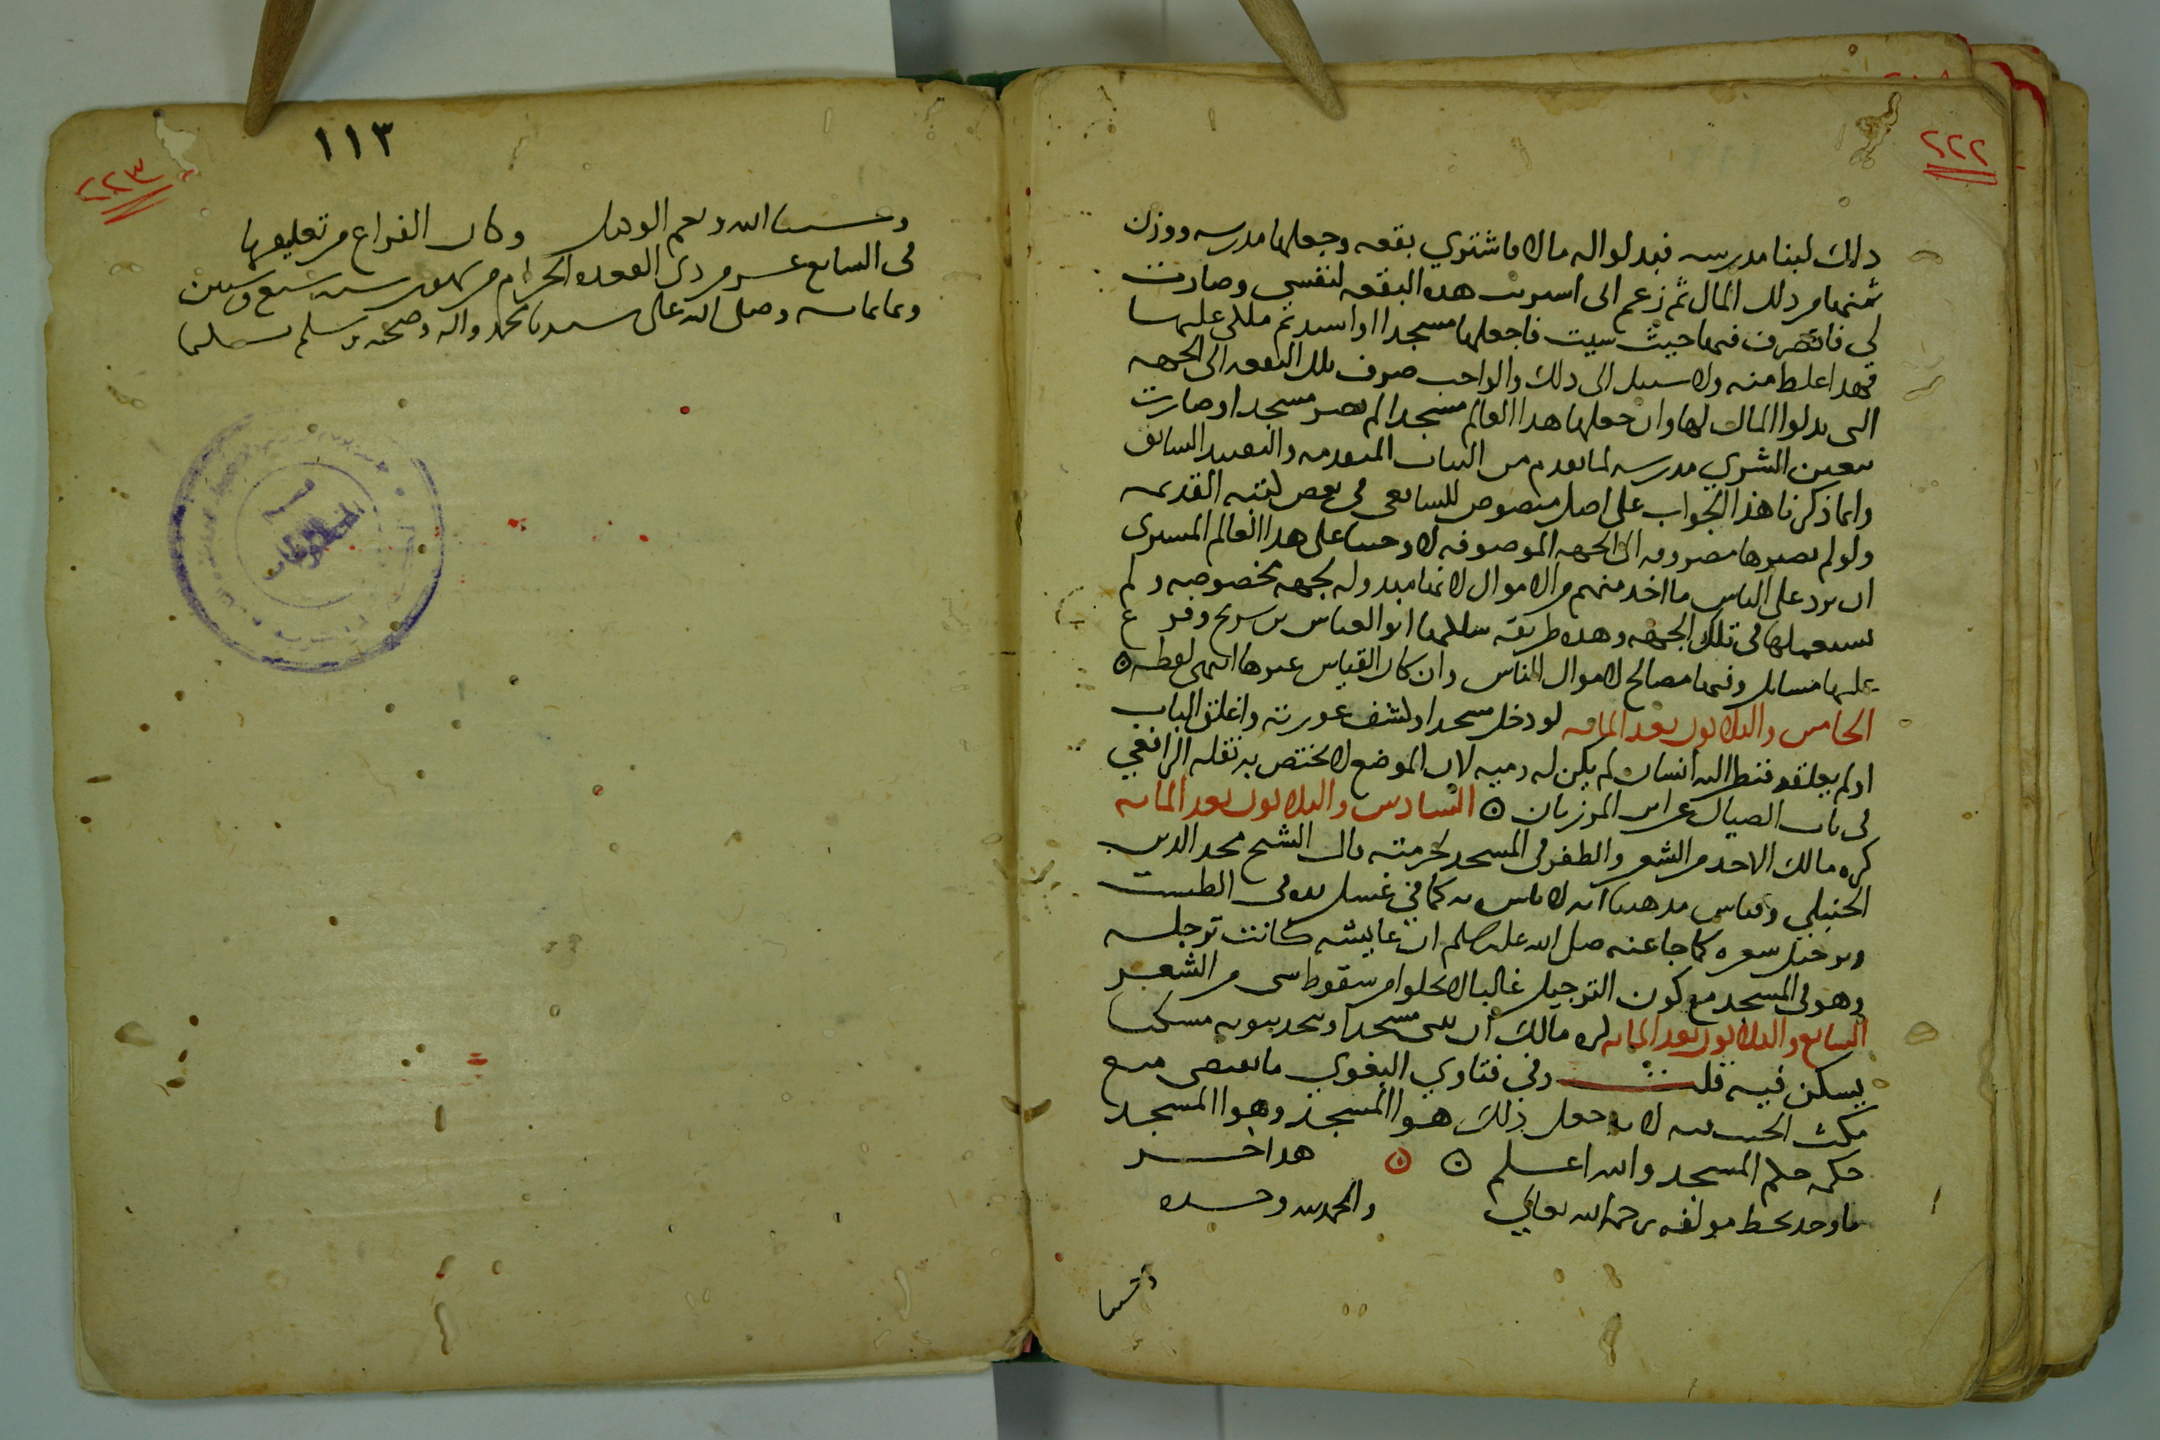 ٢٢٢
ذلك لبنا مدرسه فبذلوا له مالا فاشتري بقعه وجعلها مدرسه ووزن
ثمنها من ذلك المال ثم زعم اني اشتريت هذه البقعه لنفسي وصارت
لي فاتصرف فيها حيث شيت فاجعلها مسجدا او استديم ملكي عليها
فهذا غلط منه ولا سبيل الى ذلك والواجب صرف تلك البقعه الى الجهه
التي بذلوا المال لها وان جعلها هذا العالم مسجدا لم تصر مسجدا وصارت
بنفس الشري مدرسه لما تقدم من النيات المتقدمه والتقييد السابق
وانما ذكرنا هذا الجواب على اصل منصوص للشافعي في بعض كتبه القديمه
ولو لم نصيرها مصروفه الى الجهه الموصوفه لاوجبنا على هذا العالم المشتري
ان يرد على الناس ما اخذ منهم من الاموال لانها مبذوله لجهه مخصوصه ولم
يستعملها في تلك الجهه وهذه طريقه سلكها ابو العباس بن سريج وفرع
عليها مسايل وفيها مصالح لاموال الناس وان كان القياس غيرها انتهى لفظه
الخامس والثلاثون بعد المائه لو دخل مسجدا وكشف عورته واغلق الباب
او لم يغلقه فنظر اليه انسان لم يكن له رميه لان الموضع لا يختص به نقله الرافعي
في باب الصيال عن ابن المرزبان السادس والثلاثون بعد المائه
كره مالك الاخذ من الشعر والظفر في المسجد لحرمته قال الشيخ مجد الدين
الحنبلي وقياس مذهبنا انه لا باس به كما في غسل يده في الطست
وترجيل شعره كما جا عنه صلى الله عليه وسلم ان عايشه كانت ترجله
وهو في المسجد مع كون الترجيل غالبا لا يخلو من سقوط شي من الشعر
السابع والثلاثون بعد المائه كره مالك ان يبنى مسجدا ويتخذ فوقه مسكنا
يسكن فيه قلت وفي فتاوي البغوي ما يقتضي منع
مكث الجنب فيه لانه جعل ذلك هوا المسجد وهوا المسجد
حكمه حكم المسجد والله اعلم هذا اخر
ما وجد بخط مولفه رحمه الله تعالى والحمد لله وحده
وحسبنا
١١٣
٢٢٣
وحسبنا الله ونعم الوكيل وكان الفراغ من تعليقها
في السابع عشر من ذي القعده الحرام من شهور سنه
وثمانمائه وصلى الله على سيدنا محمد واله وصحبه وسلم تسليما